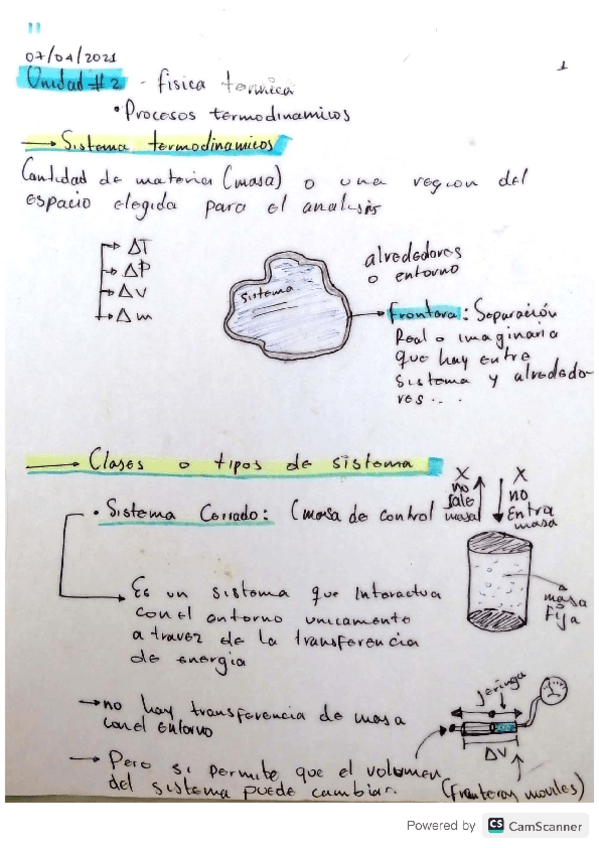 07/04/2021
1
Unidad #2 - fisica termica
• Procesos termodinamicos
→ Sistema termodinamicos
Cantidad de materia (masa) o una region del
espacio elegida para el analisis
ΔT
ΔP
Δv
Δm
Sistema
alrededores
o entorno
Frontera: Separación
Real o imaginaria
que hay entre
sistema y alrededo-
res...
→ Clases o tipos de sistema
• Sistema Cerrado: (masa de control
X
no
sale
masa
X
no
Entra
masa
masa
Fija
Es un sistema que Interactua
con el entorno unicamento
a travez de la transferencia
de energia
→ no hay transferencia de masa
con el entorno
jeringa
ΔV
→ Pero si permite que el volumen
del sistema puede cambiar.
(Fronteras moviles)
Powered by CS CamScanner